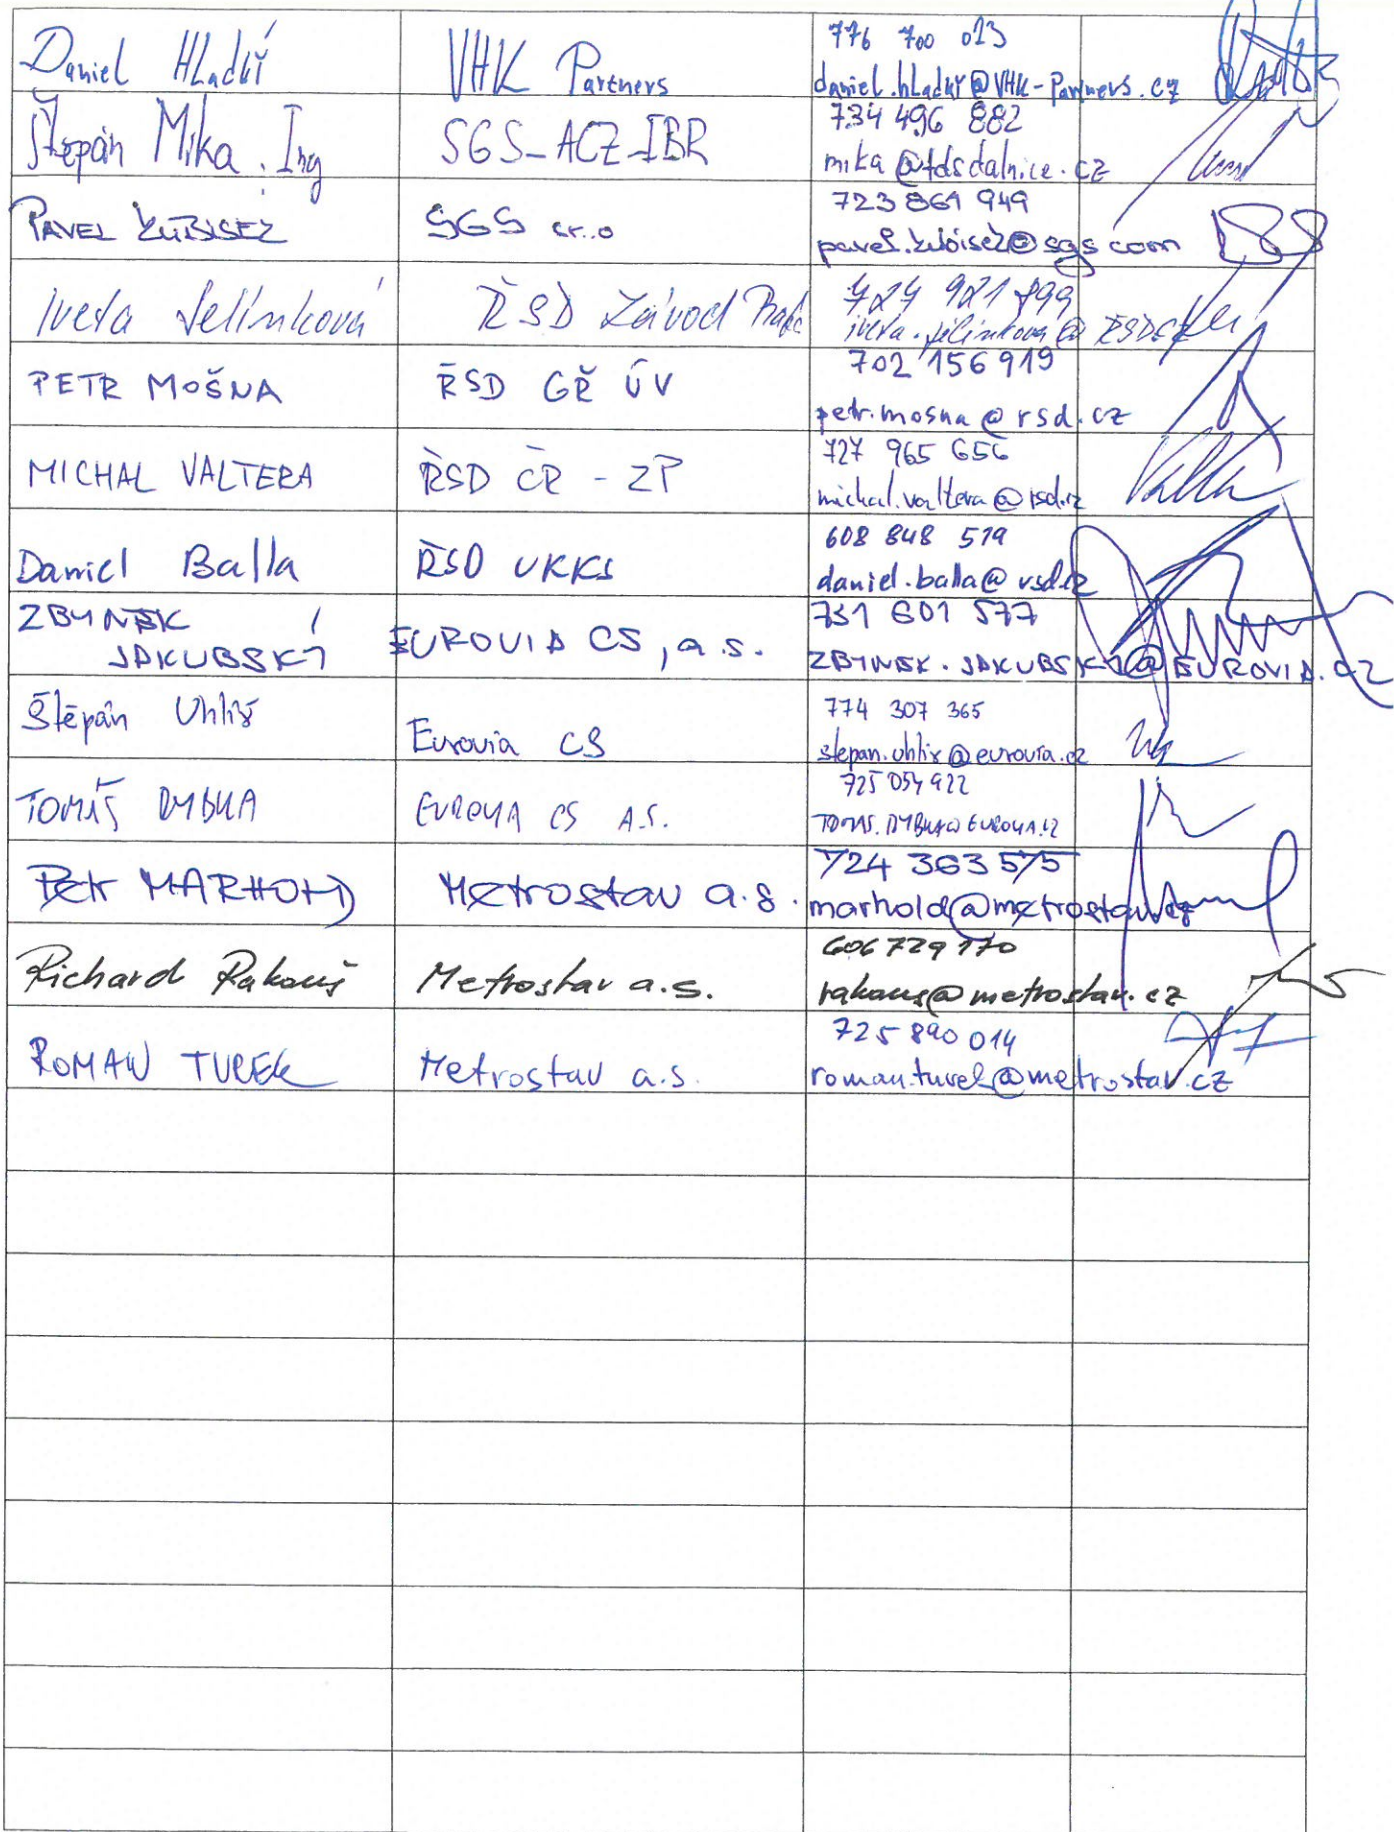 Daniel Hladký VHK Partners 776 700 013
daniel.hladky@VHK-Partners.cz
Štěpán Mika. Ing SGS_ACZ_IBR 734 496 882
mika@tdsdalnice.cz
PAVEL SGS čr.o 723 861 949
@sgs com
Iveta Jelínková ŘSD Závod Praha 724 921 799
iveta.jelinkova@ŘSD.cz
PETR MOŠNA ŘSD GŘ ÚV 702 156 919
petr.mosna@rsd.cz
MICHAL VALTERA ŘSD ČR - ZP 727 965 656
michal.valtera@rsd.cz
Daniel Balla ŘSD UKKS 608 848 519
daniel.balla@rsd.cz
ZBYNĚK JAKUBSKÝ EUROVIA CS, a.s. 731 601 577
ZBYNEK.JAKUBSKY@EUROVIA.CZ
Štěpán Uhlíř Eurovia CS 774 307 365
stepan.uhlir@eurovia.cz
TOMÁŠ DYBKA EUROVIA CS A.S. 725 054 922
TOMAS.DYBKA@EUROVIA.CZ
Petr MARHOLD Metrostav a.s. 724 363 575
marhold@metrostav.cz
Richard Rakouš Metrostav a.s. 606 729 170
rakous@metrostav.cz
ROMAN TUREK Metrostav a.s. 725 890 014
roman.turek@metrostav.cz